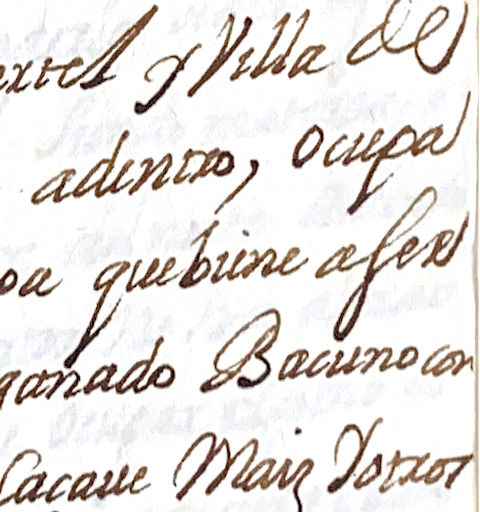 y Villa de
adentro, ocupa
que biene a ser
ganado Bacuno con
Cacaue Maiz Yotros